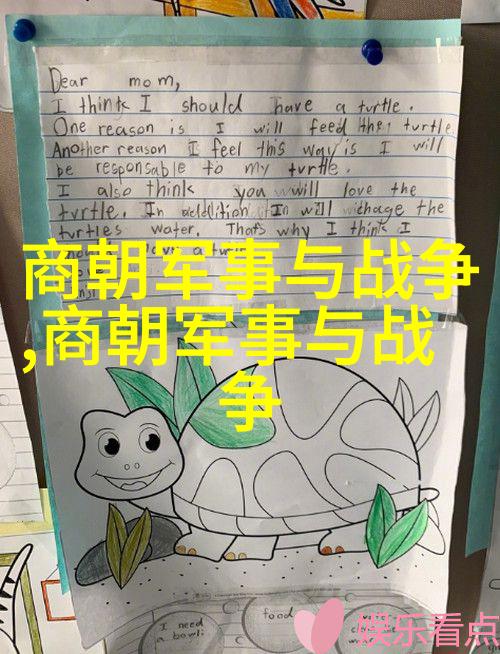 Dear mom,
I think I should have a turtle.
One reason is I will feed the turtle.
Another reason I feel this way is I will
be responsable to my turtle.
I also think you will love the
turtle. In addition I will chage the
turtles water. That's why I think I
商朝军事与战争
,商朝军事与战
争
I need
a bowl
food
娱乐看点